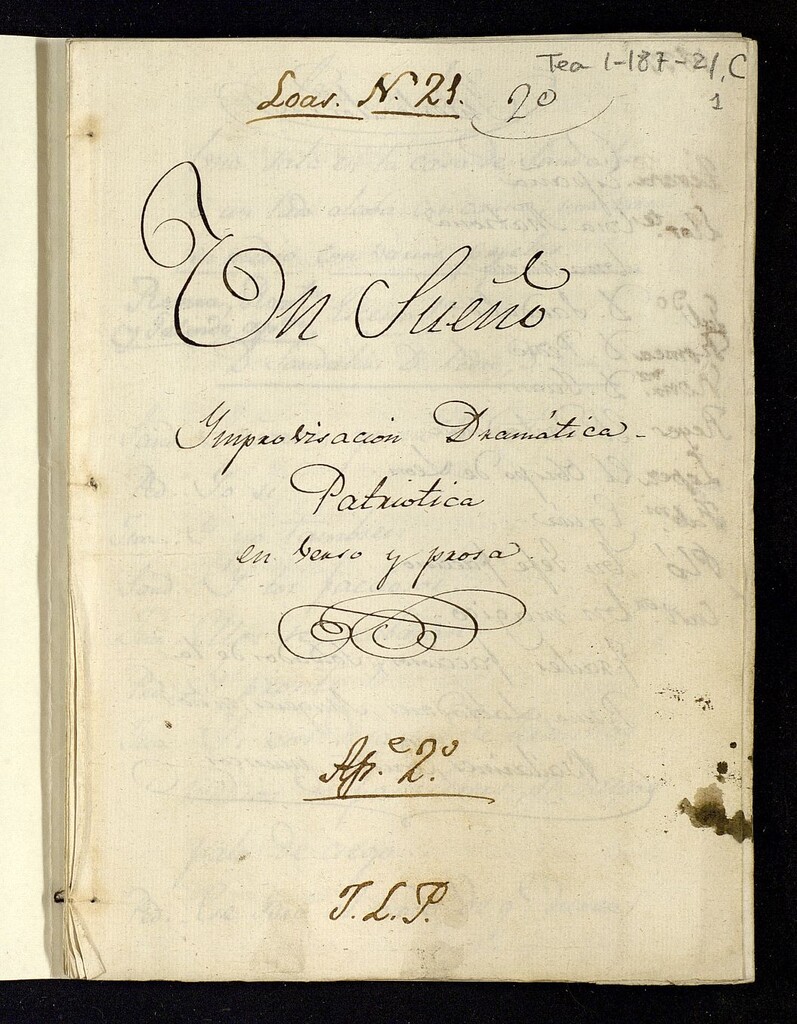 Tea 1-187-21, C
1
Loas. N.º 21. 2º
Un Sueño
Improvisacion Dramática-
Patriotica
en verso y prosa.
Ap.e 2.º
J. L. P.